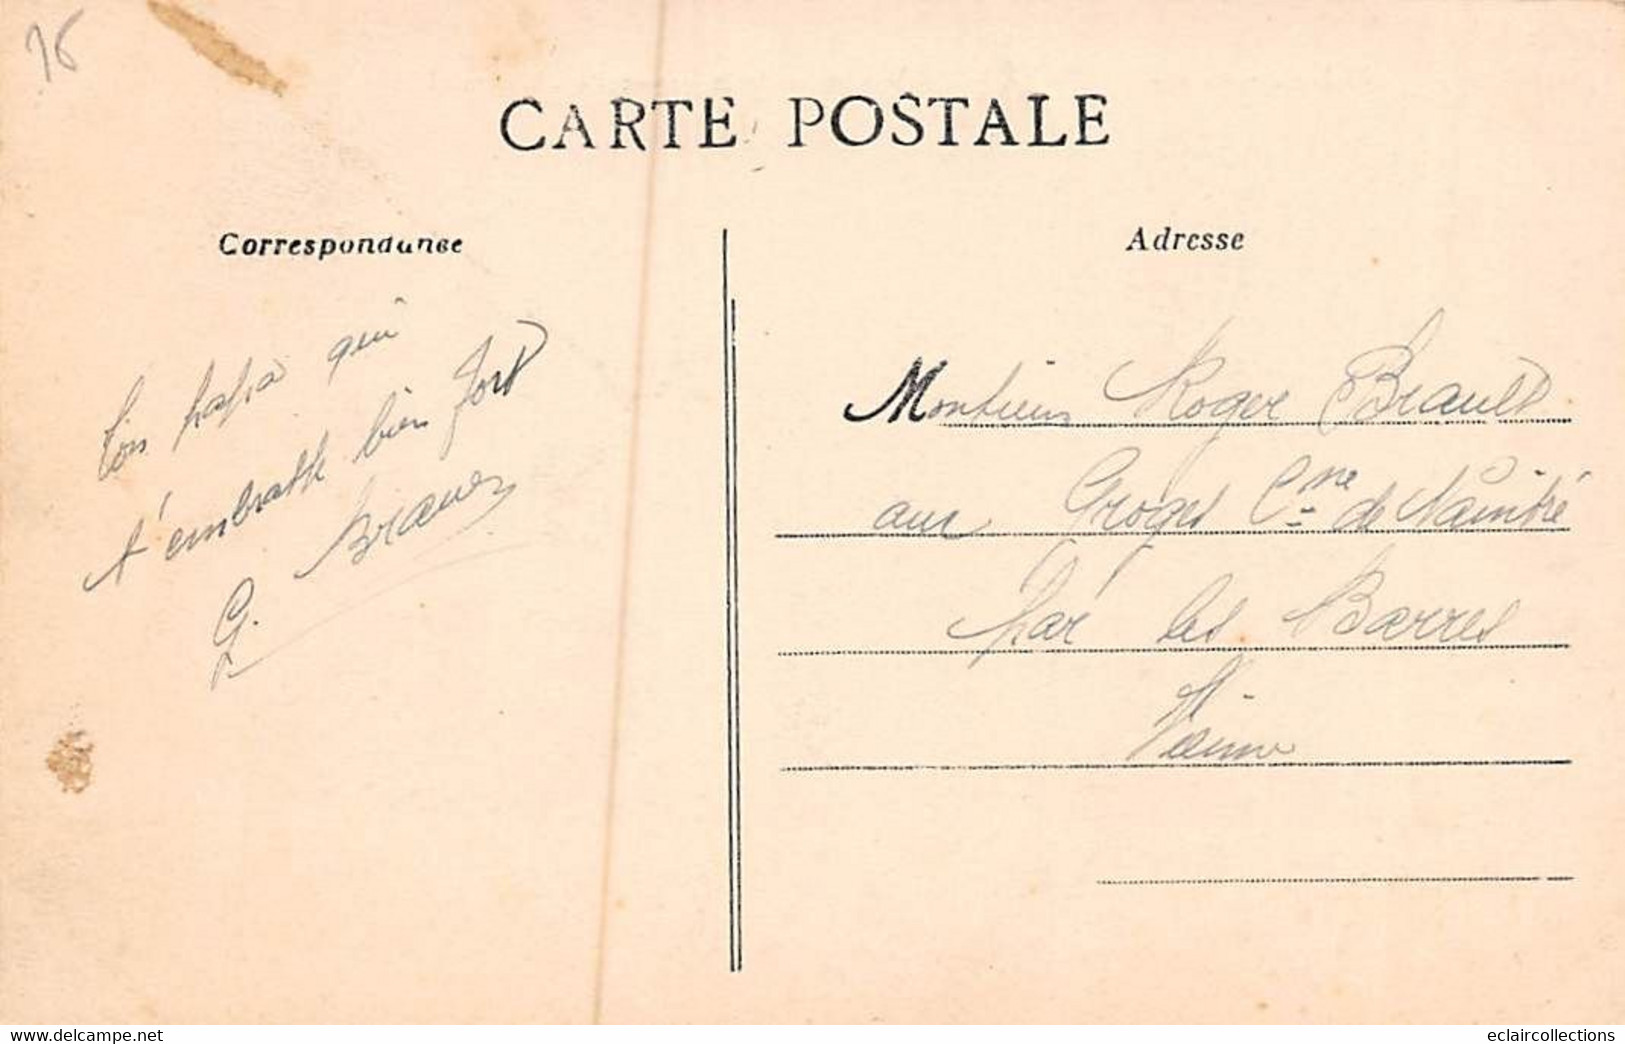 76
CARTE POSTALE
Correspondance
Adresse
Ton papa qui
t'embrasse bien fort
G. Brault
Monsieur Roger Brault
aux Groges Cne de Naintré
Par les Barres
Vienne
Delcampe.net
eclaircollections